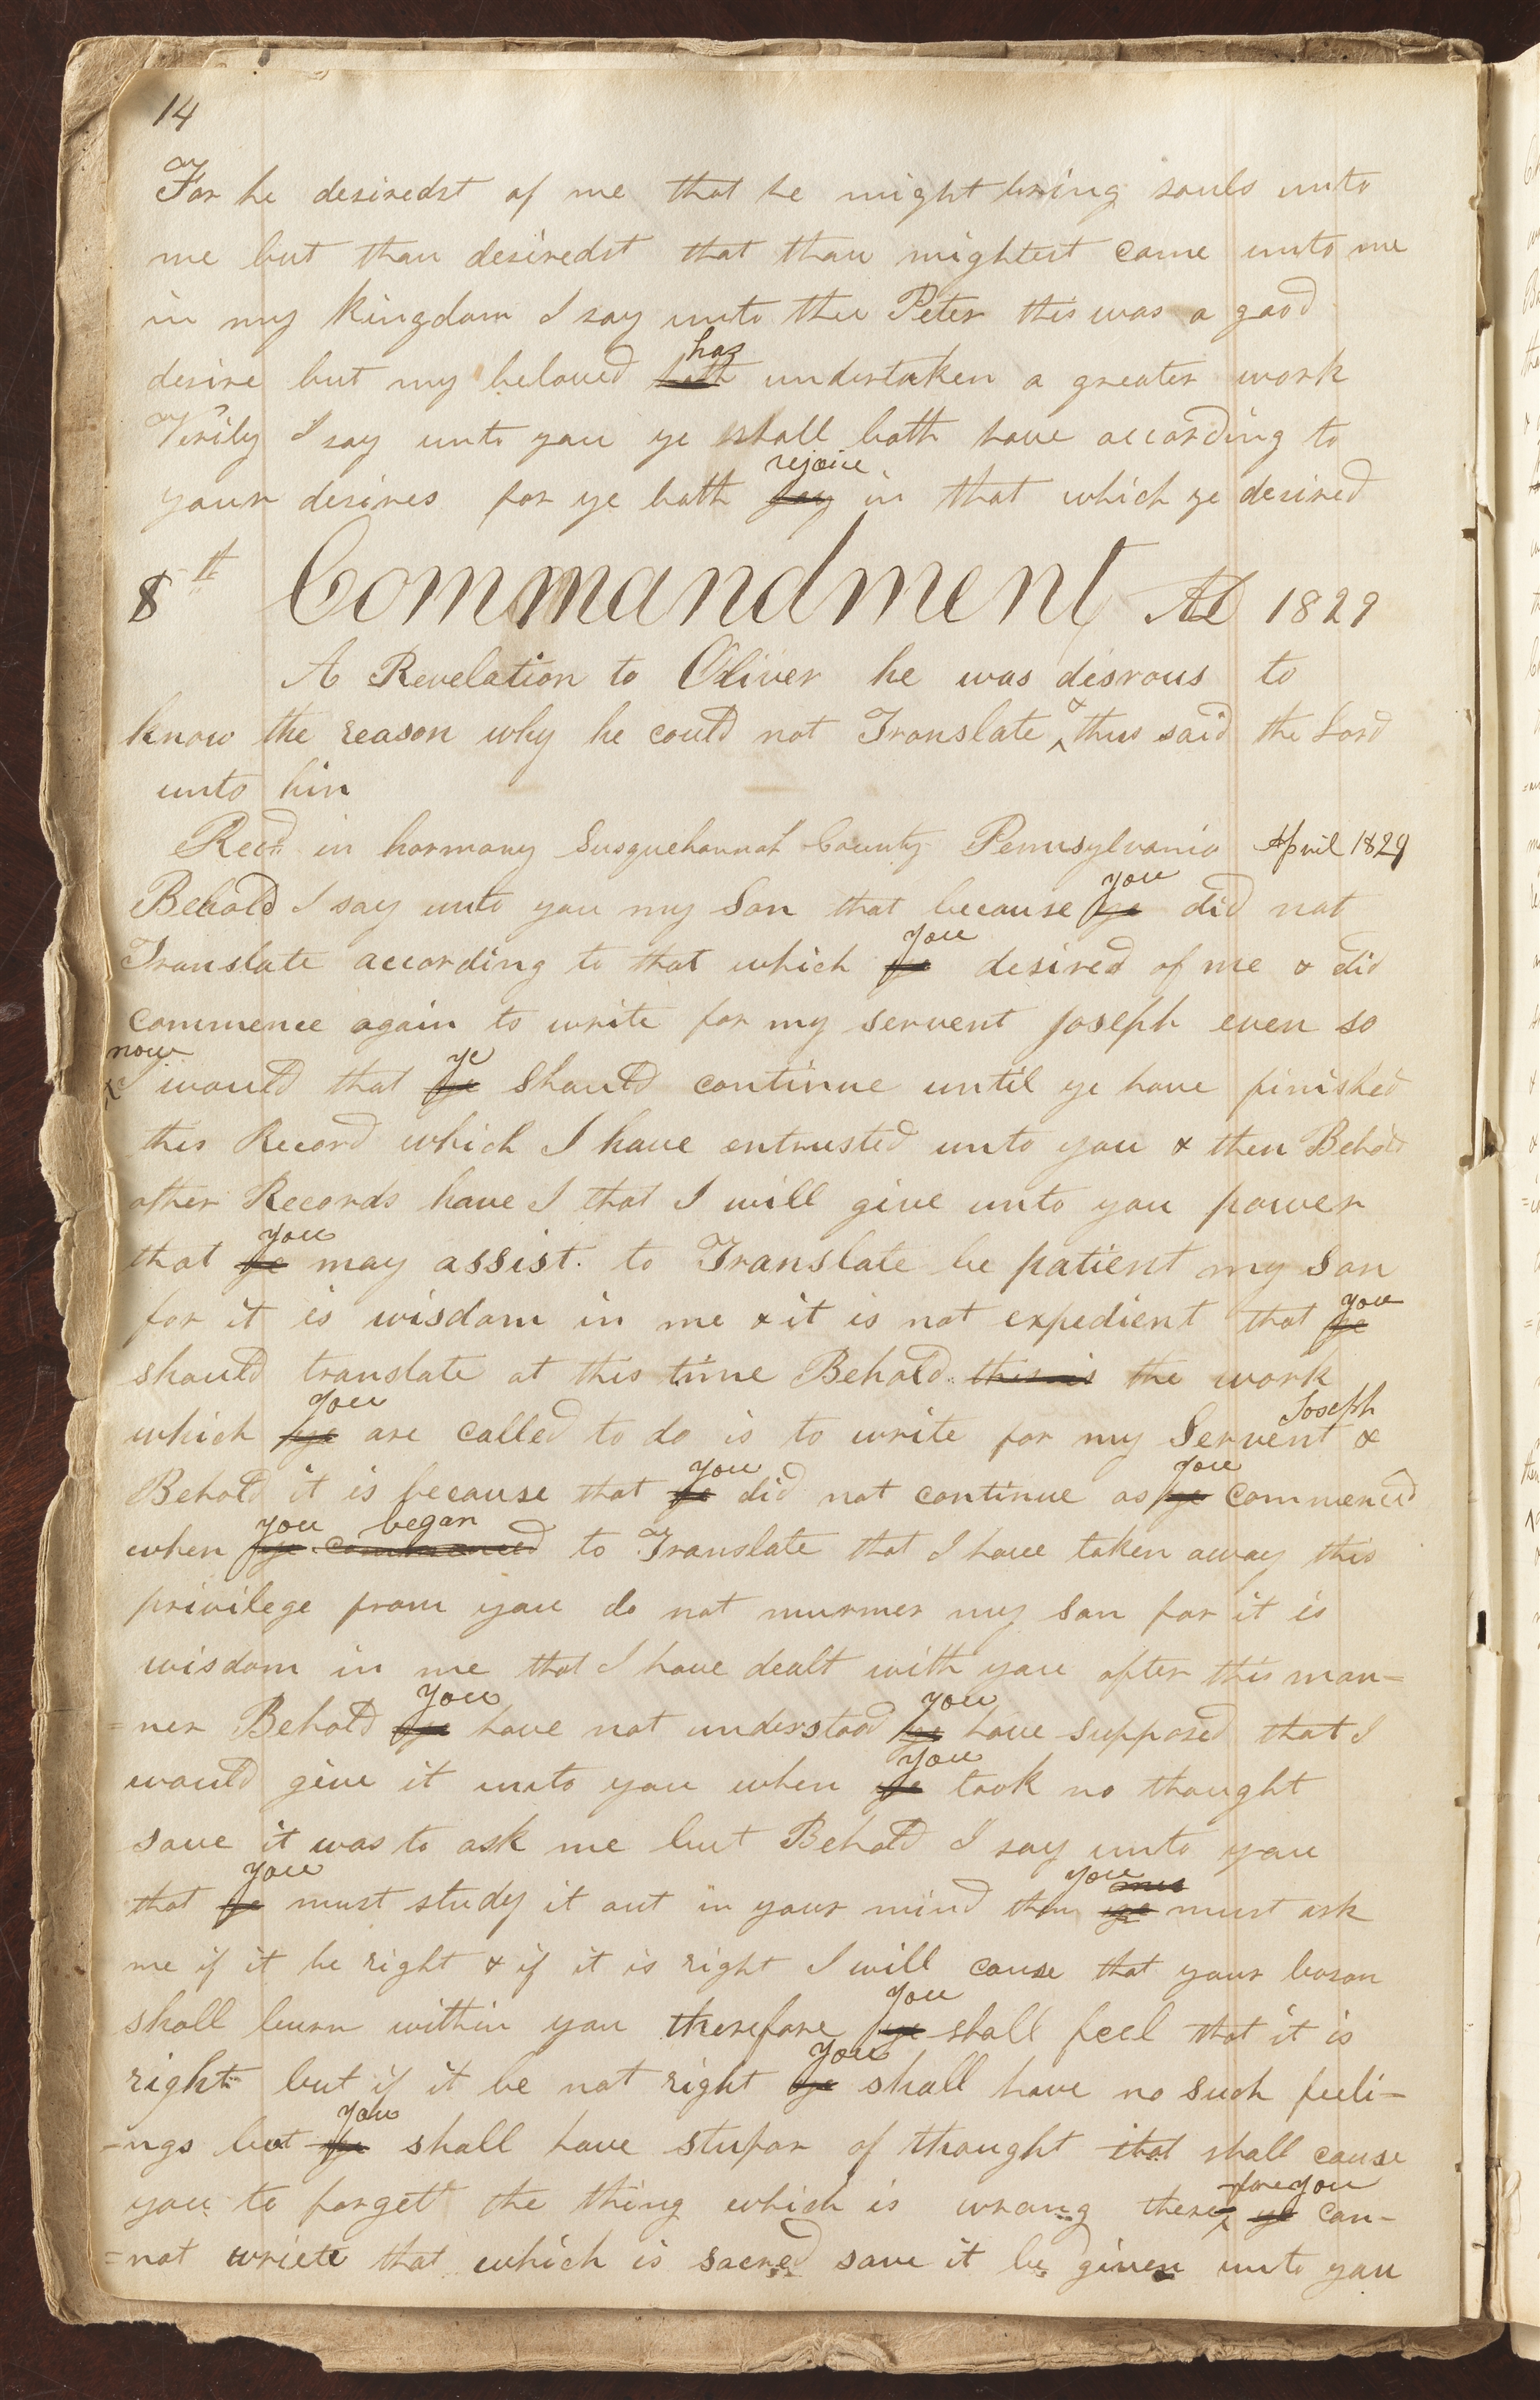 14
For he desiredst of me that he might bring souls unto
me but thou desiredst that thou mightest come unto me
in my kingdom I say unto thee Peter this was a good
has
desire but my beloved hath undertaken a greater work
Verily I say unto you ye shall both have according to
rejoice
your desires for ye both joy in that which ye desired
8th Commandment AD 1829
A Revelation to Oliver he was disrous to
know the reason why he could not Translate & thus said the Lord
unto him
Recd. in harmony Susquehannah County Pennsylvania April 1829
you
Behold I say unto you my Son that because ye did not
you
Translate according to that which ye desired of me & did
commence again to write for my servent Joseph even so
now ye
I would that ye should continue until ye have finished
this Record which I have entrusted unto you & then Behold
other Records have I that I will give unto you power
you
that ye may assist. to Translate be patient my son
you
for it is wisdom in me & it is not expedient that ye
should translate at this time Behold this is the work
you Joseph
which ye are called to do is to write for my Servent &
you you
Behold it is because that ye did not continue as ye commenced
you began
when ye commenced to Translate that I have taken away this
privilege from you do not murmer my son for it is
wisdom in me that I have dealt with you after this man=
you you
=ner Behold ye have not understood ye have supposed that I
you
would give it unto you when ye took no thought
save it was to ask me but Behold I say unto you
you you
that ye must study it out in your mind then ye must ask
me if it be right & if it is right I will cause that your bosom
you
shall burn within you therefore ye shall feel that it is
you
right but if it be not right ye shall have no such feeli=
you
=ngs but ye shall have stupor of thought that shall cause
fore you
you to forgett the thing which is wrong there ye can=
=not wriete that which is sacred save it be given unto you